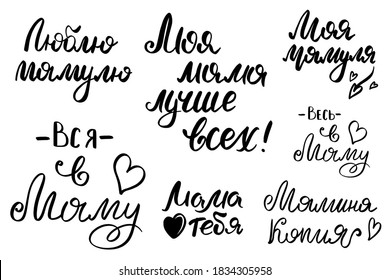 Люблю
мамулю
Моя
мама
лучше
всех!
Моя
мамуля
-Вся-
в
Маму
-Весь-
в
Маму
Мама
тебя
Мамина
Копия
shutterstock.com · 1834305958